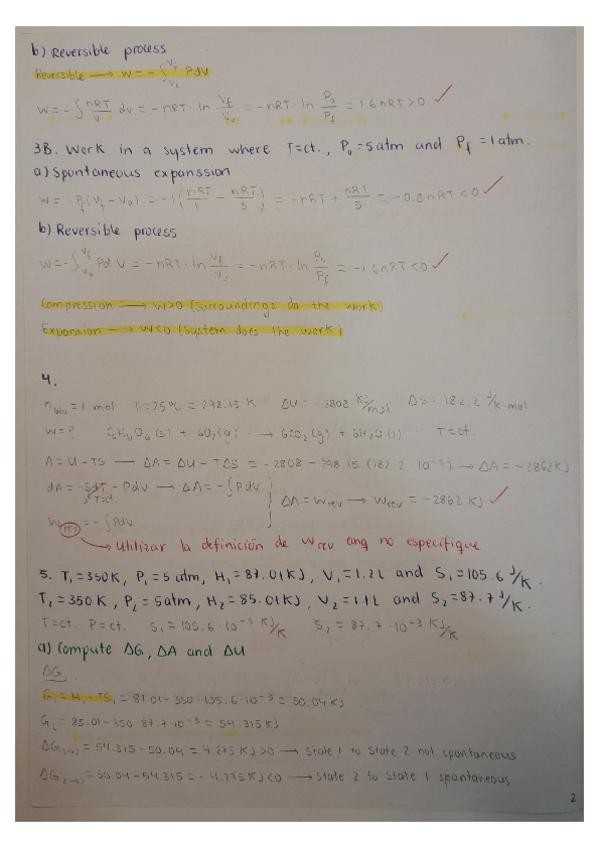 b) Reversible process
Reversible → W = -∫ᵥ₀^Vf PdV
W = -∫ nRT/V dv = -nRT·ln Vf/V₀ = -nRT·ln P₀/Pf = 1.6nRT>0 ✓
3B. Work in a system where T=ct., P₀=5atm and Pf=1atm.
a) Spontaneous expanssion
W = -Pf(Vf-V₀) = -1(nRT/1 - nRT/5) = -nRT + nRT/5 = -0.8nRT<0 ✓
b) Reversible process
W = -∫ᵥ₀^Vf PdV = -nRT·ln Vf/V₀ = -nRT·ln P₀/Pf = -1.6nRT<0 ✓
Compression → W>0 (surroundings do the work)
Expansion → W<0 (system does the work)
4.
=1 mol T=25ºC = 298.15 K ΔU = -2808 KJ/mol ΔS= 182.2 J/K·mol
W=? C₆H₁₂O₆(s) + 6O₂(g) → 6CO₂(g) + 6H₂O(l) T=ct.
A=U-TS → ΔA = ΔU - TΔS = -2808 - 298.15 (182.2·10⁻³) → ΔA = -2862KJ
dA = -SdT - PdV → ΔA = -∫PdV
T=ct. ΔA = Wrev → Wrev = -2862 KJ ✓
Wrev = -∫PdV
→ Utilizar la definición de Wrev anq no especifique
5. T₁=350K, P₁=5 atm, H₁=87.01KJ, V₁=1.2L and S₁=105.6 J/K.
T₂=350K, P₂=5atm, H₂=85.01KJ, V₂=1.1L and S₂=87.7 J/K.
T=ct. P=ct. S₁=105.6·10⁻³ KJ/K S₂=87.7·10⁻³ KJ/K
a) Compute ΔG, ΔA and ΔU
ΔG
G₁=H₁-TS₁ = 87.01-350·105.6·10⁻³ = 50.04KJ
G₂=85.01-350·87.7·10⁻³ = 54.315KJ
ΔG₁→₂ = 54.315-50.04 = 4.275KJ>0 → State 1 to State 2 not spontaneous
ΔG₂→₁ = 50.04-54.315 = -4.275KJ<0 → State 2 to State 1 spontaneous
2